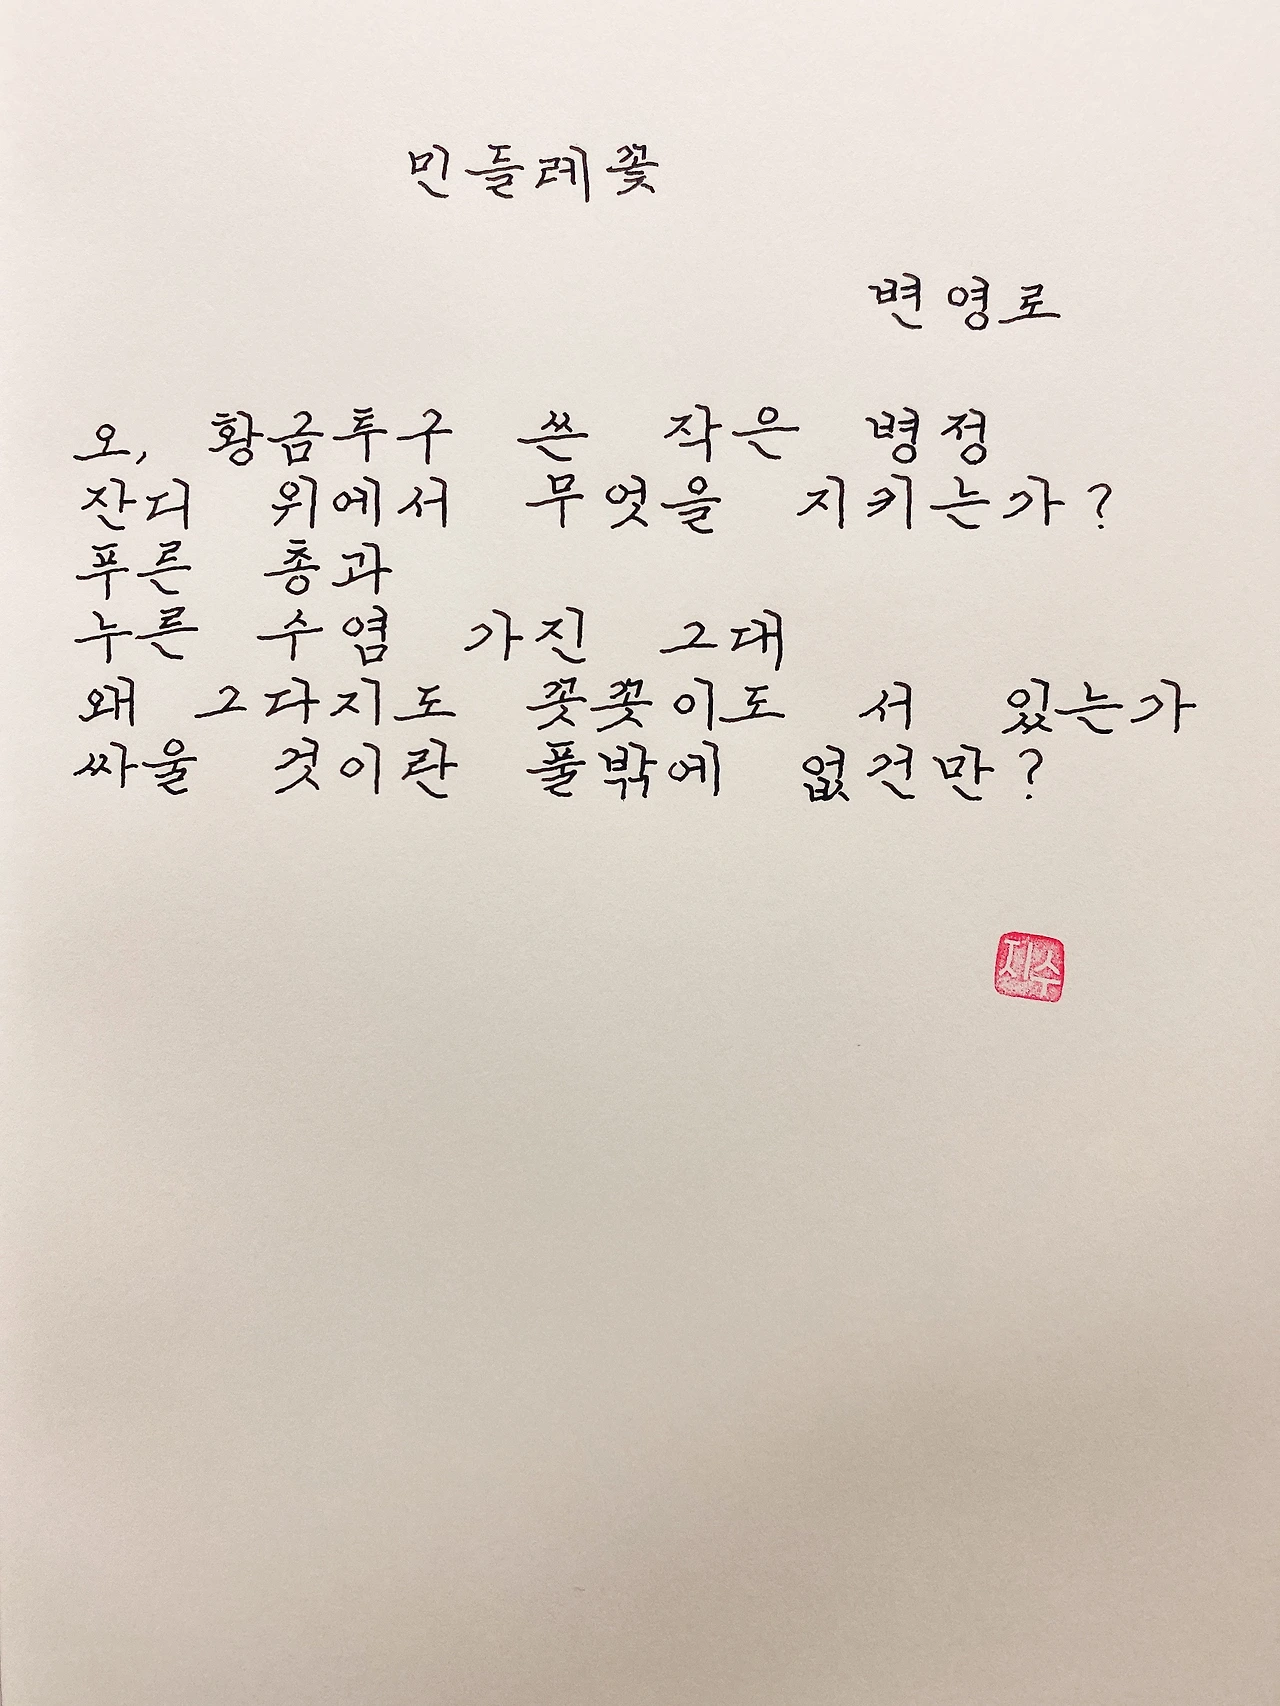 민들레꽃
변영로
오, 황금투구 쓴 작은 병정
잔디 위에서 무엇을 지키는가?
푸른 총과
누른 수염 가진 그대
왜 그다지도 꽂꽂이도 서 있는가
싸울 것이란 풀밖에 없건만?
지수